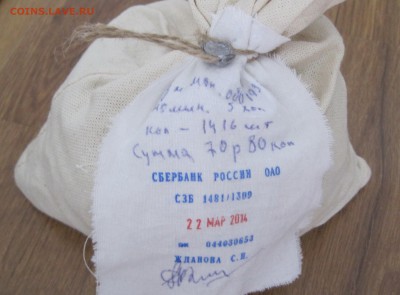 COINS.LAVE.RU
5 коп
коп - 1416 шт
Сумма 70р 80коп
СБЕРБАНК РОССИИ ОАО
СЗБ 1481/1309
22 МАР 2014
БИК 044030653
ЖДАНОВА С.Н.